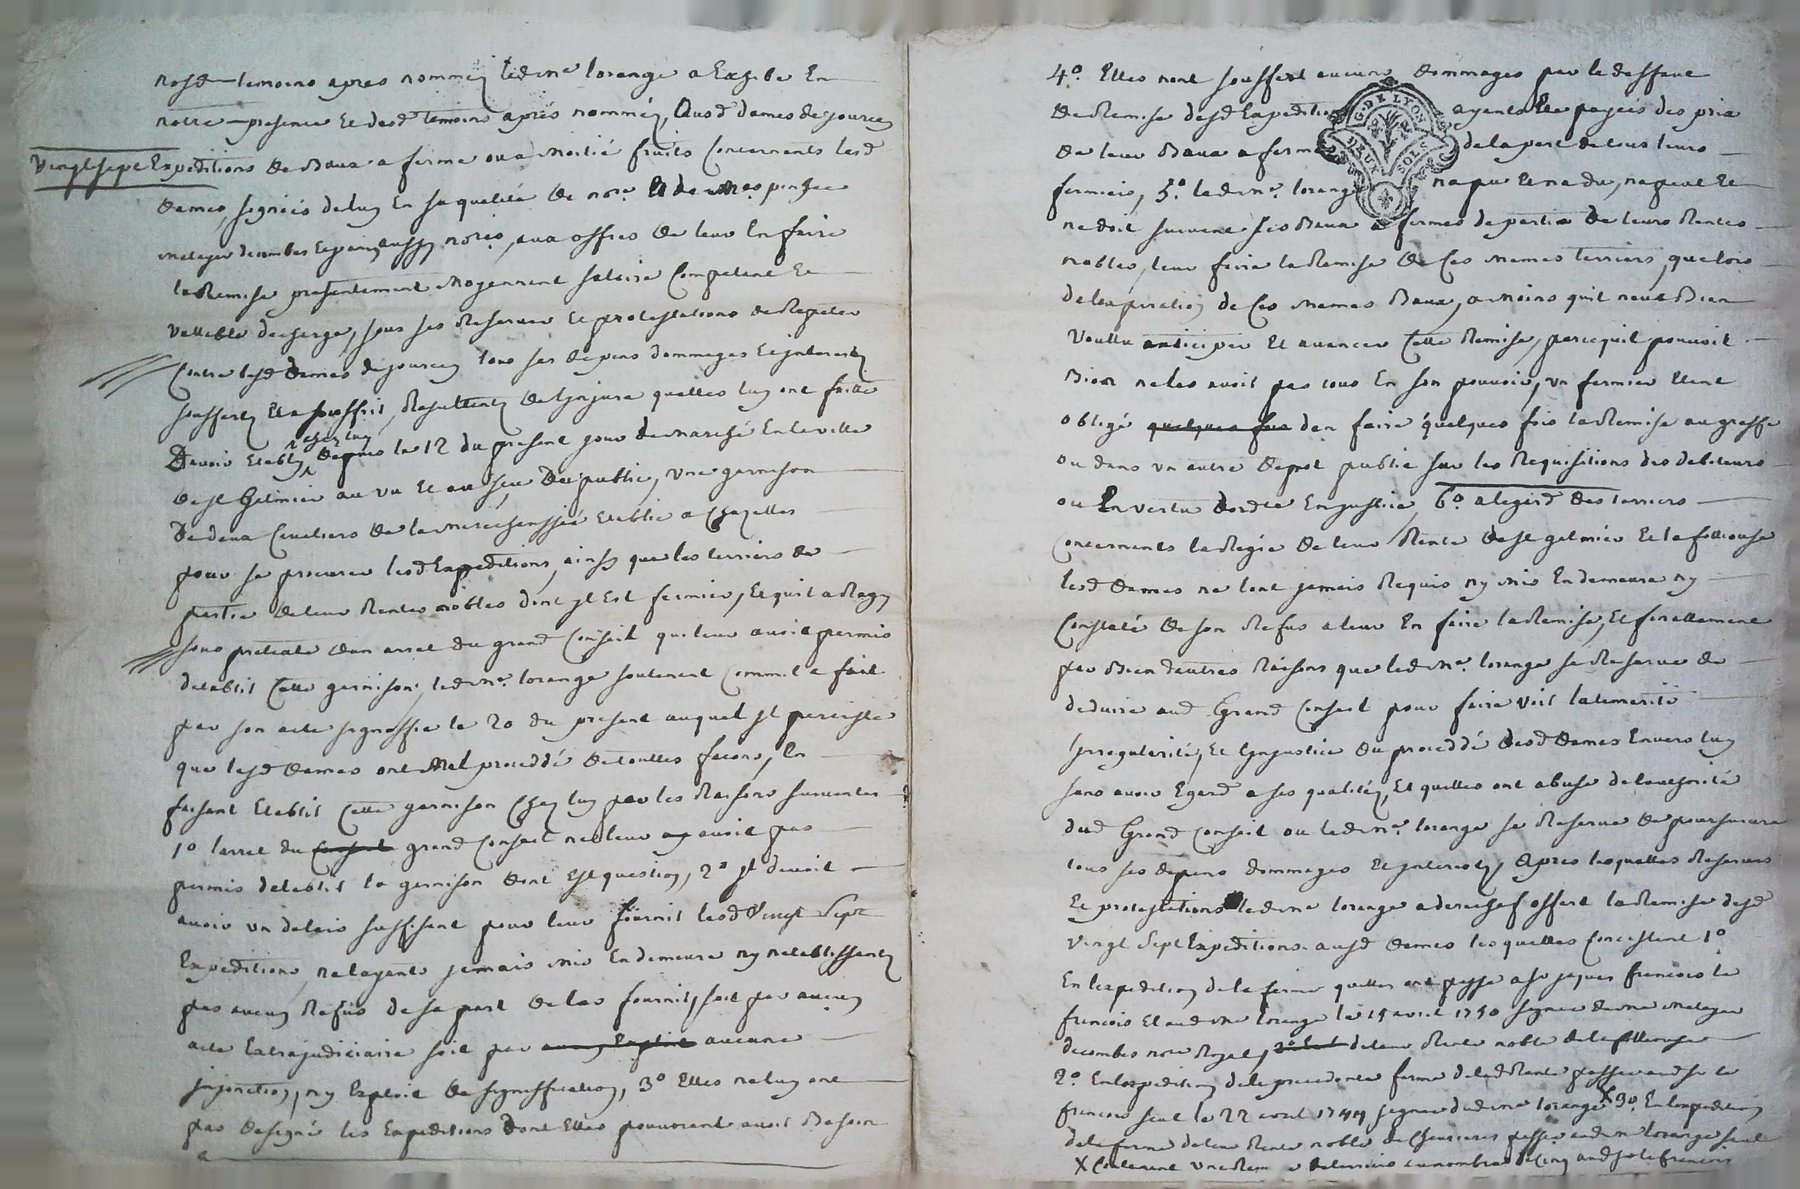 nosd temoins apres nommés ledit me lorange a Exhibé En
notre presence Et desd temoins après nommés, Ausd dames de jourcey
vingt sept Expeditions de Baux a ferme ou a moitié fruits Concernants lesd
dames, signées de luy En sa qualité de nore
decombes aussy nores, aux offres de leur En faire
la Remise presentement moyennant salaire Competant Et
vallable decharge, sous ses Reserves Et protestations de Repeter
Contre lesd dames de jourcey tous ses depens dommages Et interests
soufferts Et a souffrir, Resultants de l'injure quelles luy ont faitte
Davoir Etably chez luy depuis le 12 du present jour de marché En la ville
de st Gelmier au vu Et au sçu du public, une garnison
De deux Cavaliers de la marechaussée Etablie a Chazelles
pour se procurer lesd Expeditions, ainsy que les terriers de
partie de leur Rentes nobles dont jl Est fermier, Et quil a
sous pretexte dun arret du grand Conseil qui leur avoit permis
detablir Cette garnison, led me lorange soutenant Comme il a fait
par son acte signiffié le 20 du present auquel jl persiste
que lesd dames ont Mal proceddé de touttes facons, En
faisant Etablir Cette garnison Chez luy par les Raisons suivantes
1o larret du Conseil grand Conseil ne leur avoit pas
permis detablir la garnison dont Est question, 2o jl devoit
avoir un delais suffisant pour leur fournir lesd Vingt Sept
Expeditions, ne layants jamais mis En demeure ny n'etablissants
pas aucun Refus de sa part de les fournir, soit par aucun
acte Extrajudiciaire soit par aucun Exploit aucune
jnjonction, ny Exploit de signiffication, 3o Elles ne luy ont
pas designé les Expeditions dont Elles pouvoient avoir Besoin
4o. Elles nont souffert aucuns dommages par le deffaut
de Remise desd Expeditions ayants Eté payées des prix
de leur Baux a ferme de la part de tous leurs
fermiers, 5o. led me. lorange na pu Et na du, ne peut Et
ne doit suivant ses Baux a fermes de partie de leurs Rentes
nobles, leur faire la Remise de Ces memes terriers, que lors
de lexpiration de Ces memes Baux, a moins quil neut Bien
voullu anticiper Et avancer Cette Remise, parcequil pouvoit
Bien ne les avoir pas tous En son pouvoir, un fermier Etant
obligé quelques fois den faire quelques fois la Remise au greffe
ou dans un autre depot public sur les Requisitions des debiteurs
ou En vertu dordre En justice, 6o. a legard des terriers
Concernants la Regie de leur Rente de st gelmier Et la follieuse
lesd dames ne lont jamais Requis ny mis En demeure ny
Constaté de son Refus a leur En faire la Remise, Et finallement
par Bien dautres Raisons que led me. lorange se Reserve de
deduire aud Grand Conseil pour faire voir la temerité
Jrregularité, Et Linjustice du proceddé desd dames Envers luy
sans avoir Egard a ses qualités, Et quelles ont abusé de lauthorité
dud Grand Conseil ou led me. lorange se Reserve de poursuivre
tous ses depens dommages Et jnterests, Apres lesquelles Reserves
Et protestations led me lorange a derechef offert la Remise desd
vingt Sept Expeditions ausd dames lesquelles Concistent 1o
En lexpedition de la ferme quelles ont passé a sr jaques francois le
francois Et aud me lorange le 15 avril 1750 signée
decombes nore Royal, de leur Rente noble de la follieuse
2o. En lexpedition de la precedente ferme de lad Rente passée aud sr le
francois seul le 22 avril 1744 signée dud me lorange X 3o. En lexpedition
de la ferme de leur Rente noble de passée aud me lorange seul
X Contenant
G. DE LYON
DEUX SOLS